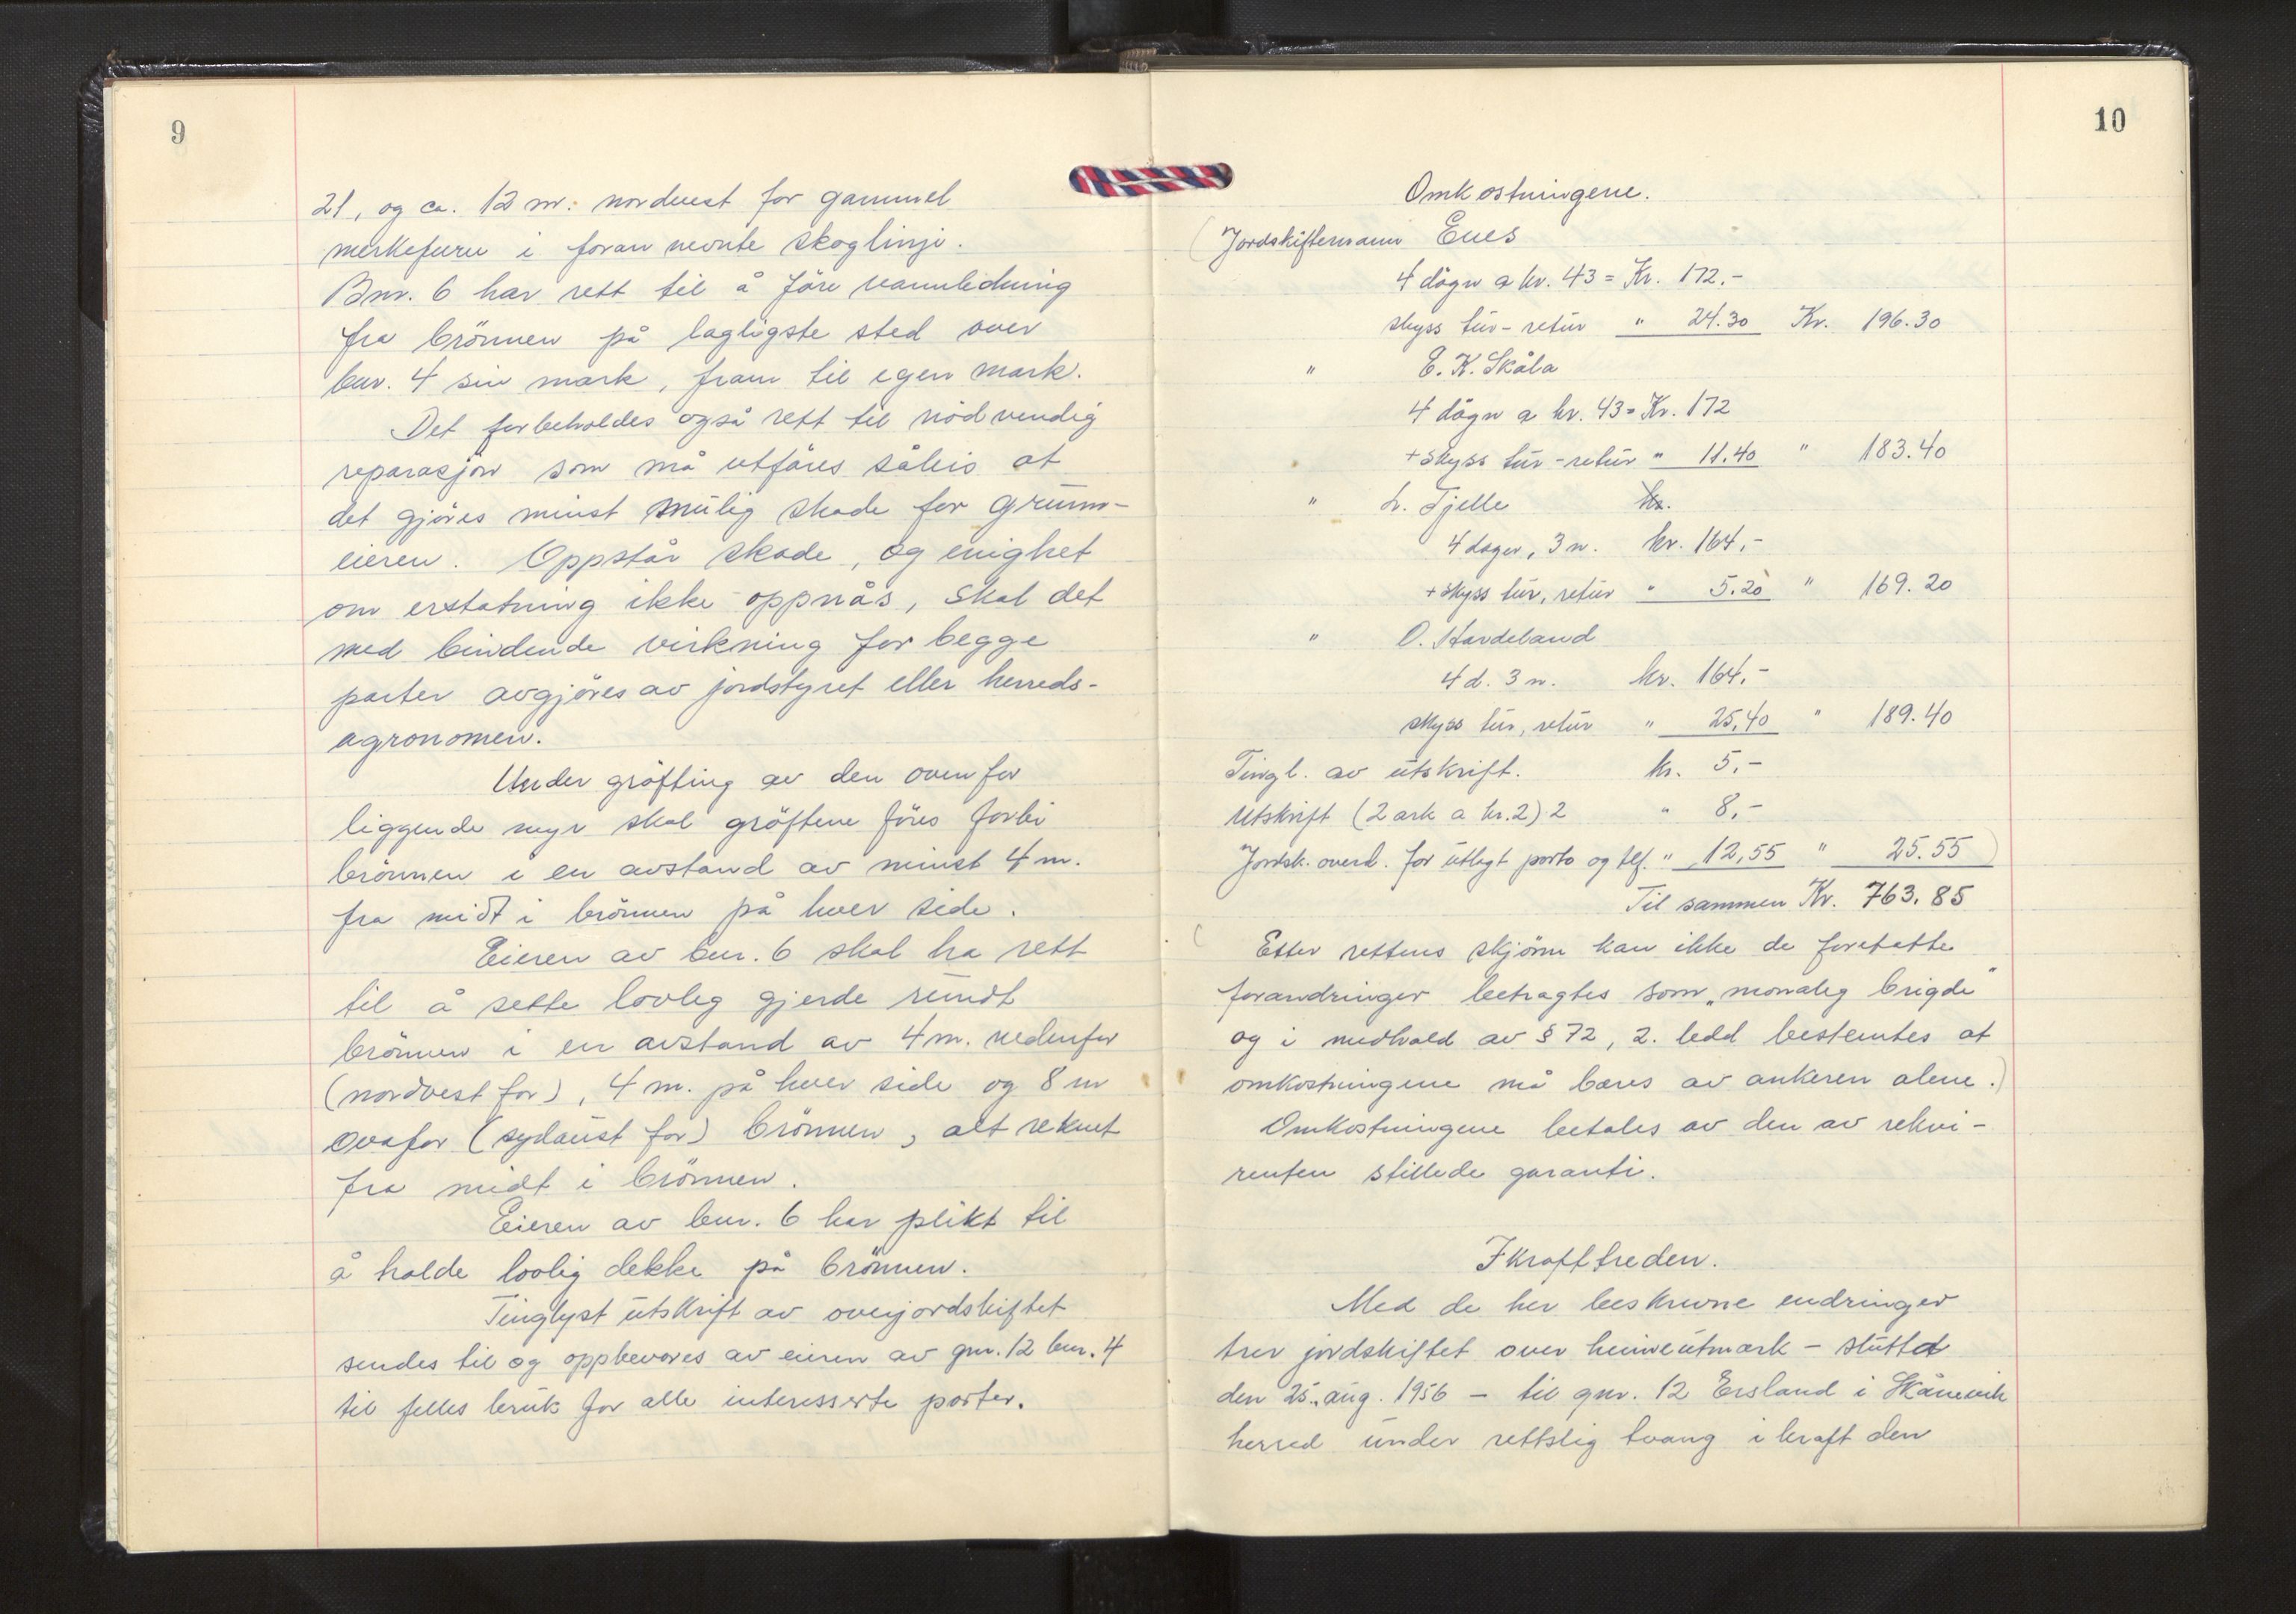 9
21, og ca. 12 m. nordvest for gammel
merkefuru i foran nevnte skoglinje.
Bnr. 6 har rett til å före vannledning
fra brönnen på lagligste sted over
bnr. 4 sin mark, fram til egen mark.
Det forbeholdes også rett til nödvendig
reparasjon som må utföres såleis at
det gjöres minst mulig skade for grunn-
eieren. Oppstår skade, og enighet
om erstatning ikke oppnås, skal det
med bindende virkning for begge
parter avgjöres av jordstyret eller herreds-
agronomen.
Under gröfting av den ovenfor
liggende myr skal gröftene föres forbi
brönnen i en avstand av minst 4 m.
fra midt i brönnen på hver side.
Eieren av bnr. 6 skal ha rett
til å sette lovleg gjerde rundt
brönnen i en avstand av 4 m. nedenfor
(nordvest for), 4 m. på hver side og 8 m
ovafor (sydaust for) brönnen, alt reknet
fra midt i brönnen.
Eieren av bnr. 6 har plikt til
å holde lovlig dekke på brönnen.
Tinglyst utskrift av overjordskiftet
sendes til og oppbevares av eieren av gnr. 12 bnr. 4
til felles bruk for alle interesserte parter.
10
Omkostningene.
(Jordskiftemann Enes
4 dögn a kr. 43 = Kr. 172.-
skyss tur-retur " 24.30 Kr. 196.30
" E. K. Skåla
4 dögn a kr. 43 = Kr. 172
+ skyss tur-retur " 11.40 " 183.40
" L. Tjelle kr.
4 dager, 3 n. kr. 164,-
+ skyss tur, retur " 5.20 " 169.20
" O. Handeland
4 d. 3 n. kr. 164.-
skyss tur, retur " 25,40 " 189.40
Tingl. av utskrift. kr. 5,-
Utskrift (2 ark a kr. 2) 2 " 8,-
Jordsk. overd. for utlagt porto og tlf. " 12,55 " 25.55)
Til sammen Kr. 763.85
(Etter rettens skjönn kan ikke de foretatte
forandringer betragtes som "monaleg brigde"
og i medhold av § 72, 2. ledd bestemtes at
omkostningene må bæres av ankeren alene.)
Omkostningene betales av den av rekvi-
renten stillede garanti.
Ikrafttreden.
Med de her beskrevne endringer
trer jordskiftet over heimeutmark - sluttet
den 25. aug. 1956 - til gnr. 12 Ersland i Skånevik
herred under rettslig tvang i kraft den